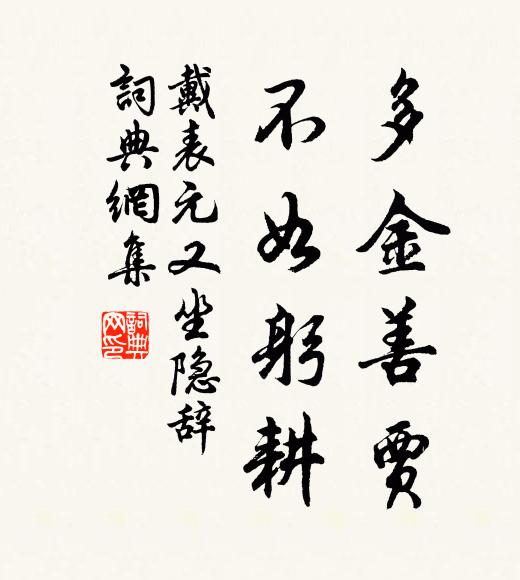 多金善賈
不如躬耕
戴表元又坐隐辞
詞典網集
詞典
网印